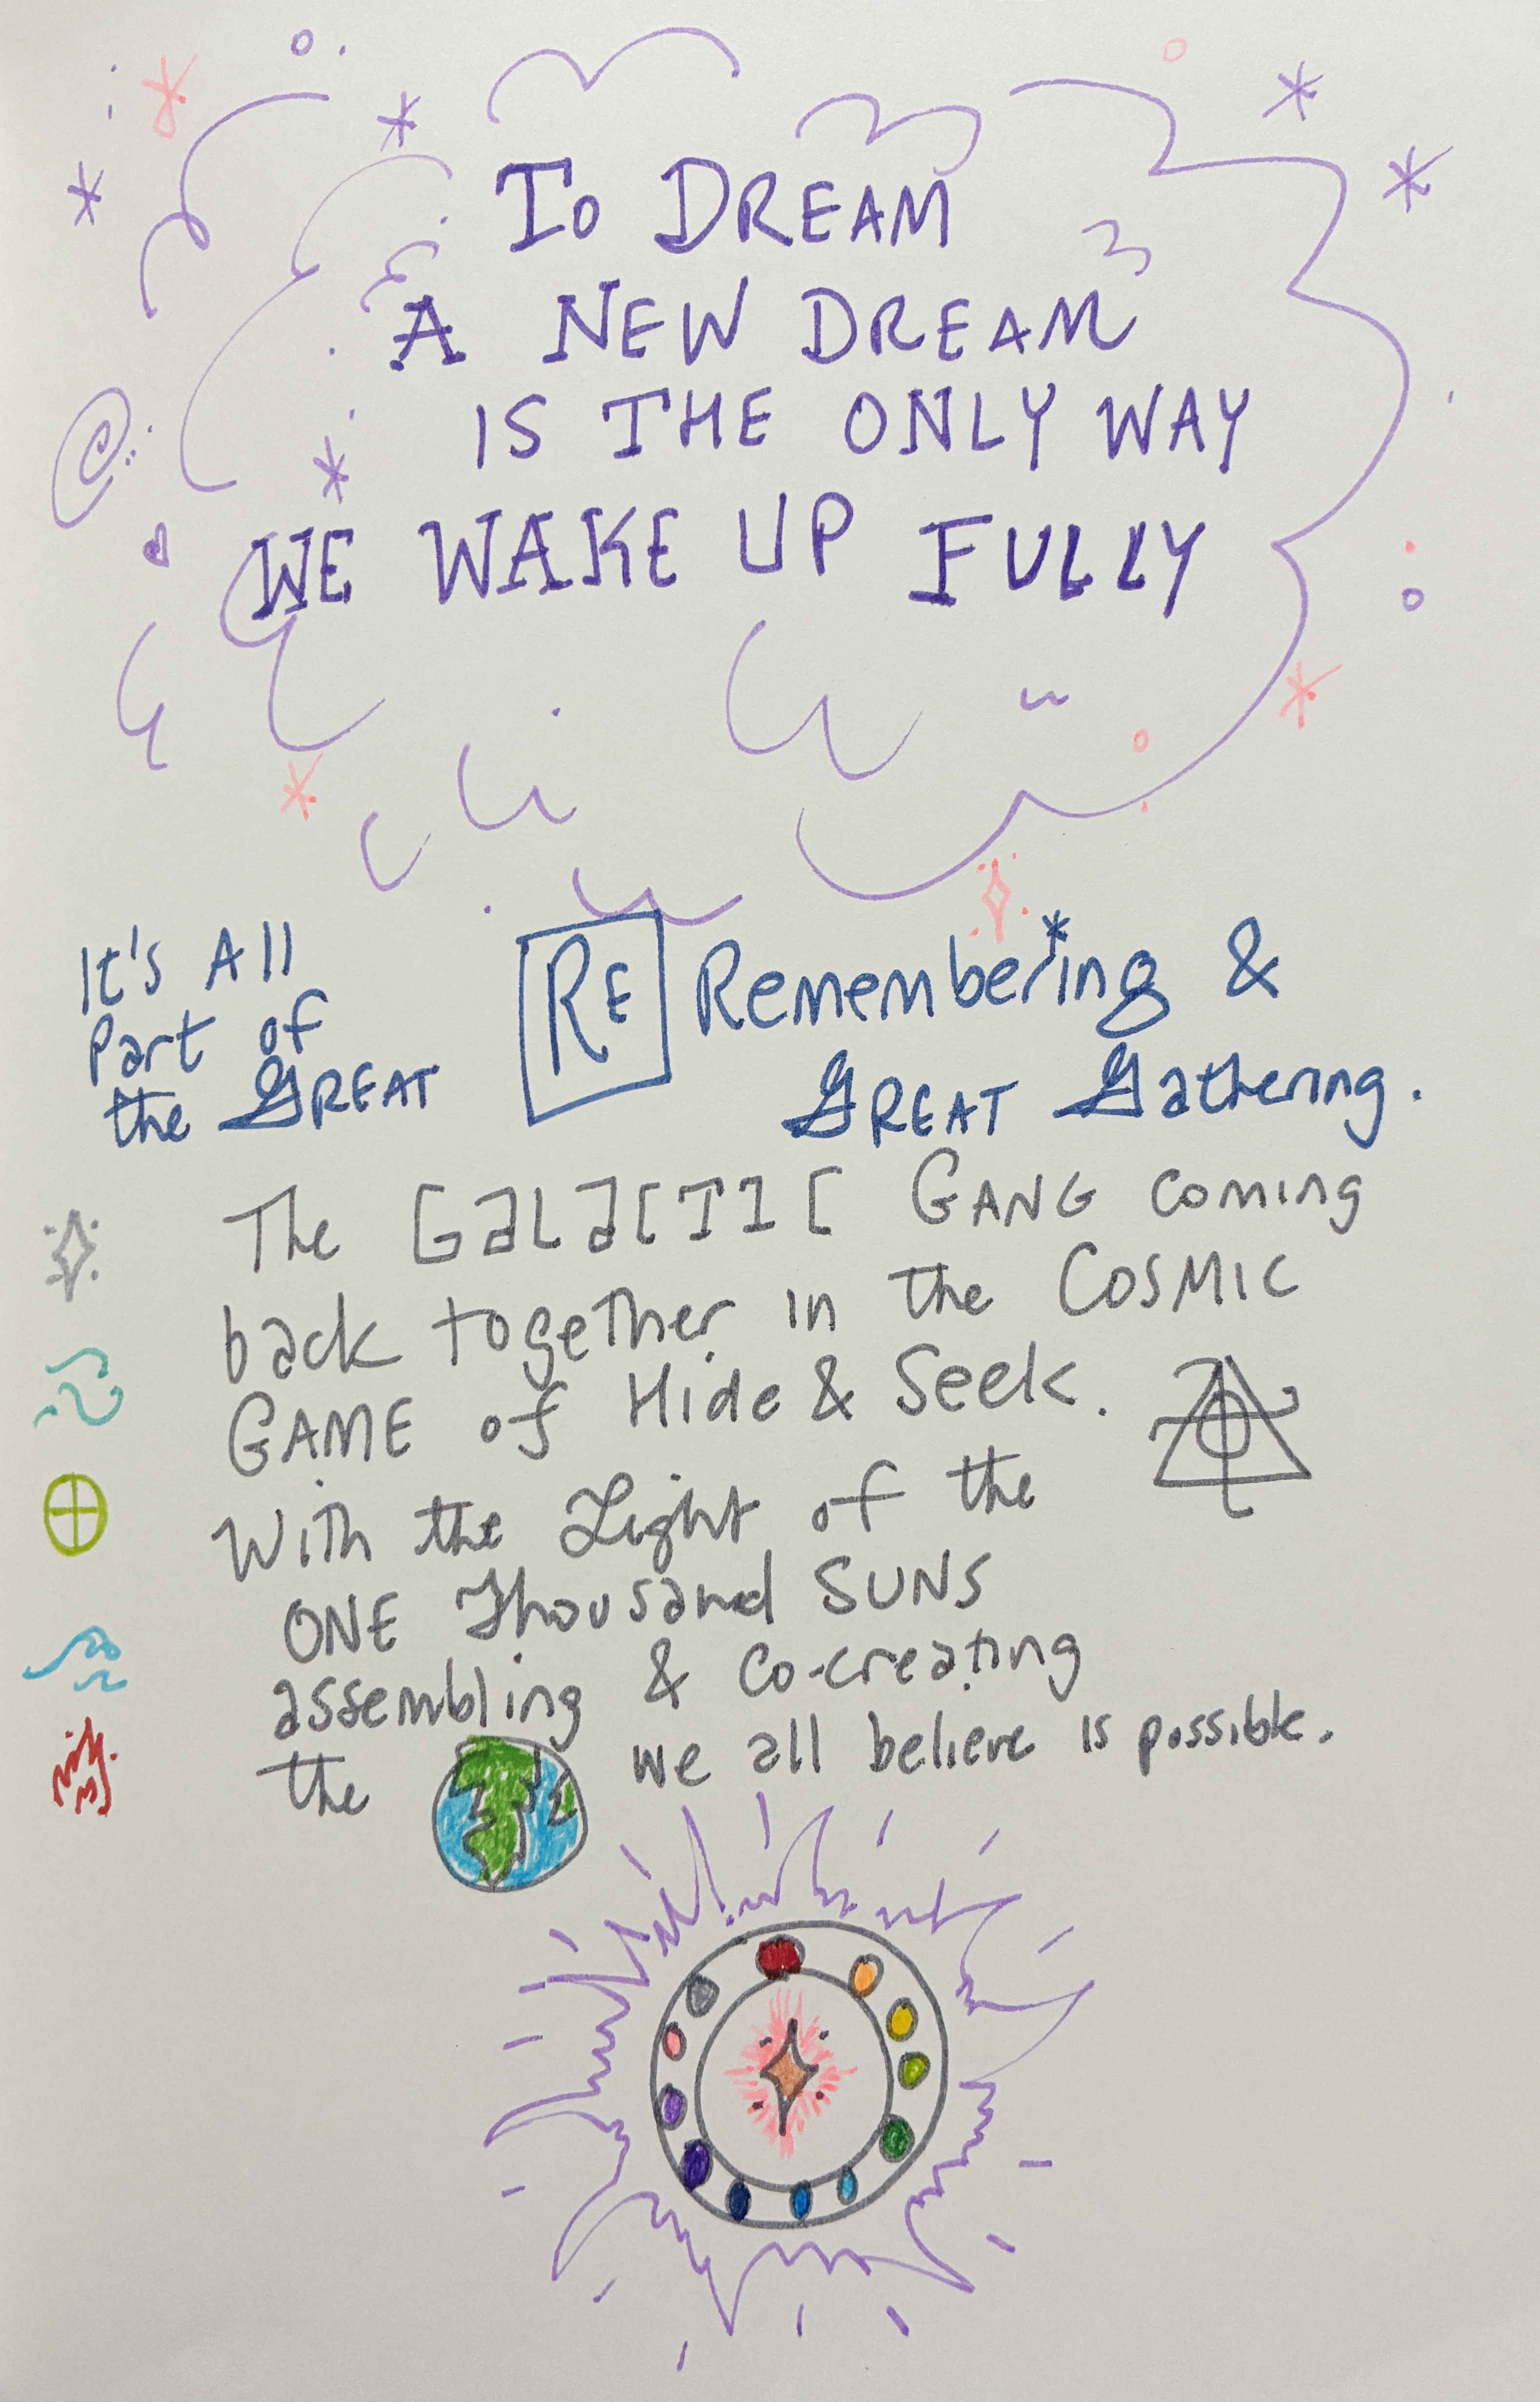 To DREAM
A NEW DREAM
IS THE ONLY WAY
WE WAKE UP FULLY
It's All
Part of
the GREAT
RE Remembering &
GREAT Gathering.
The GalacTIC GANG coming
back together in the COSMIC
GAME of Hide & Seek.
With the Light of the
ONE Thousand SUNS
assembling & co-creating
the we all believe is possible.